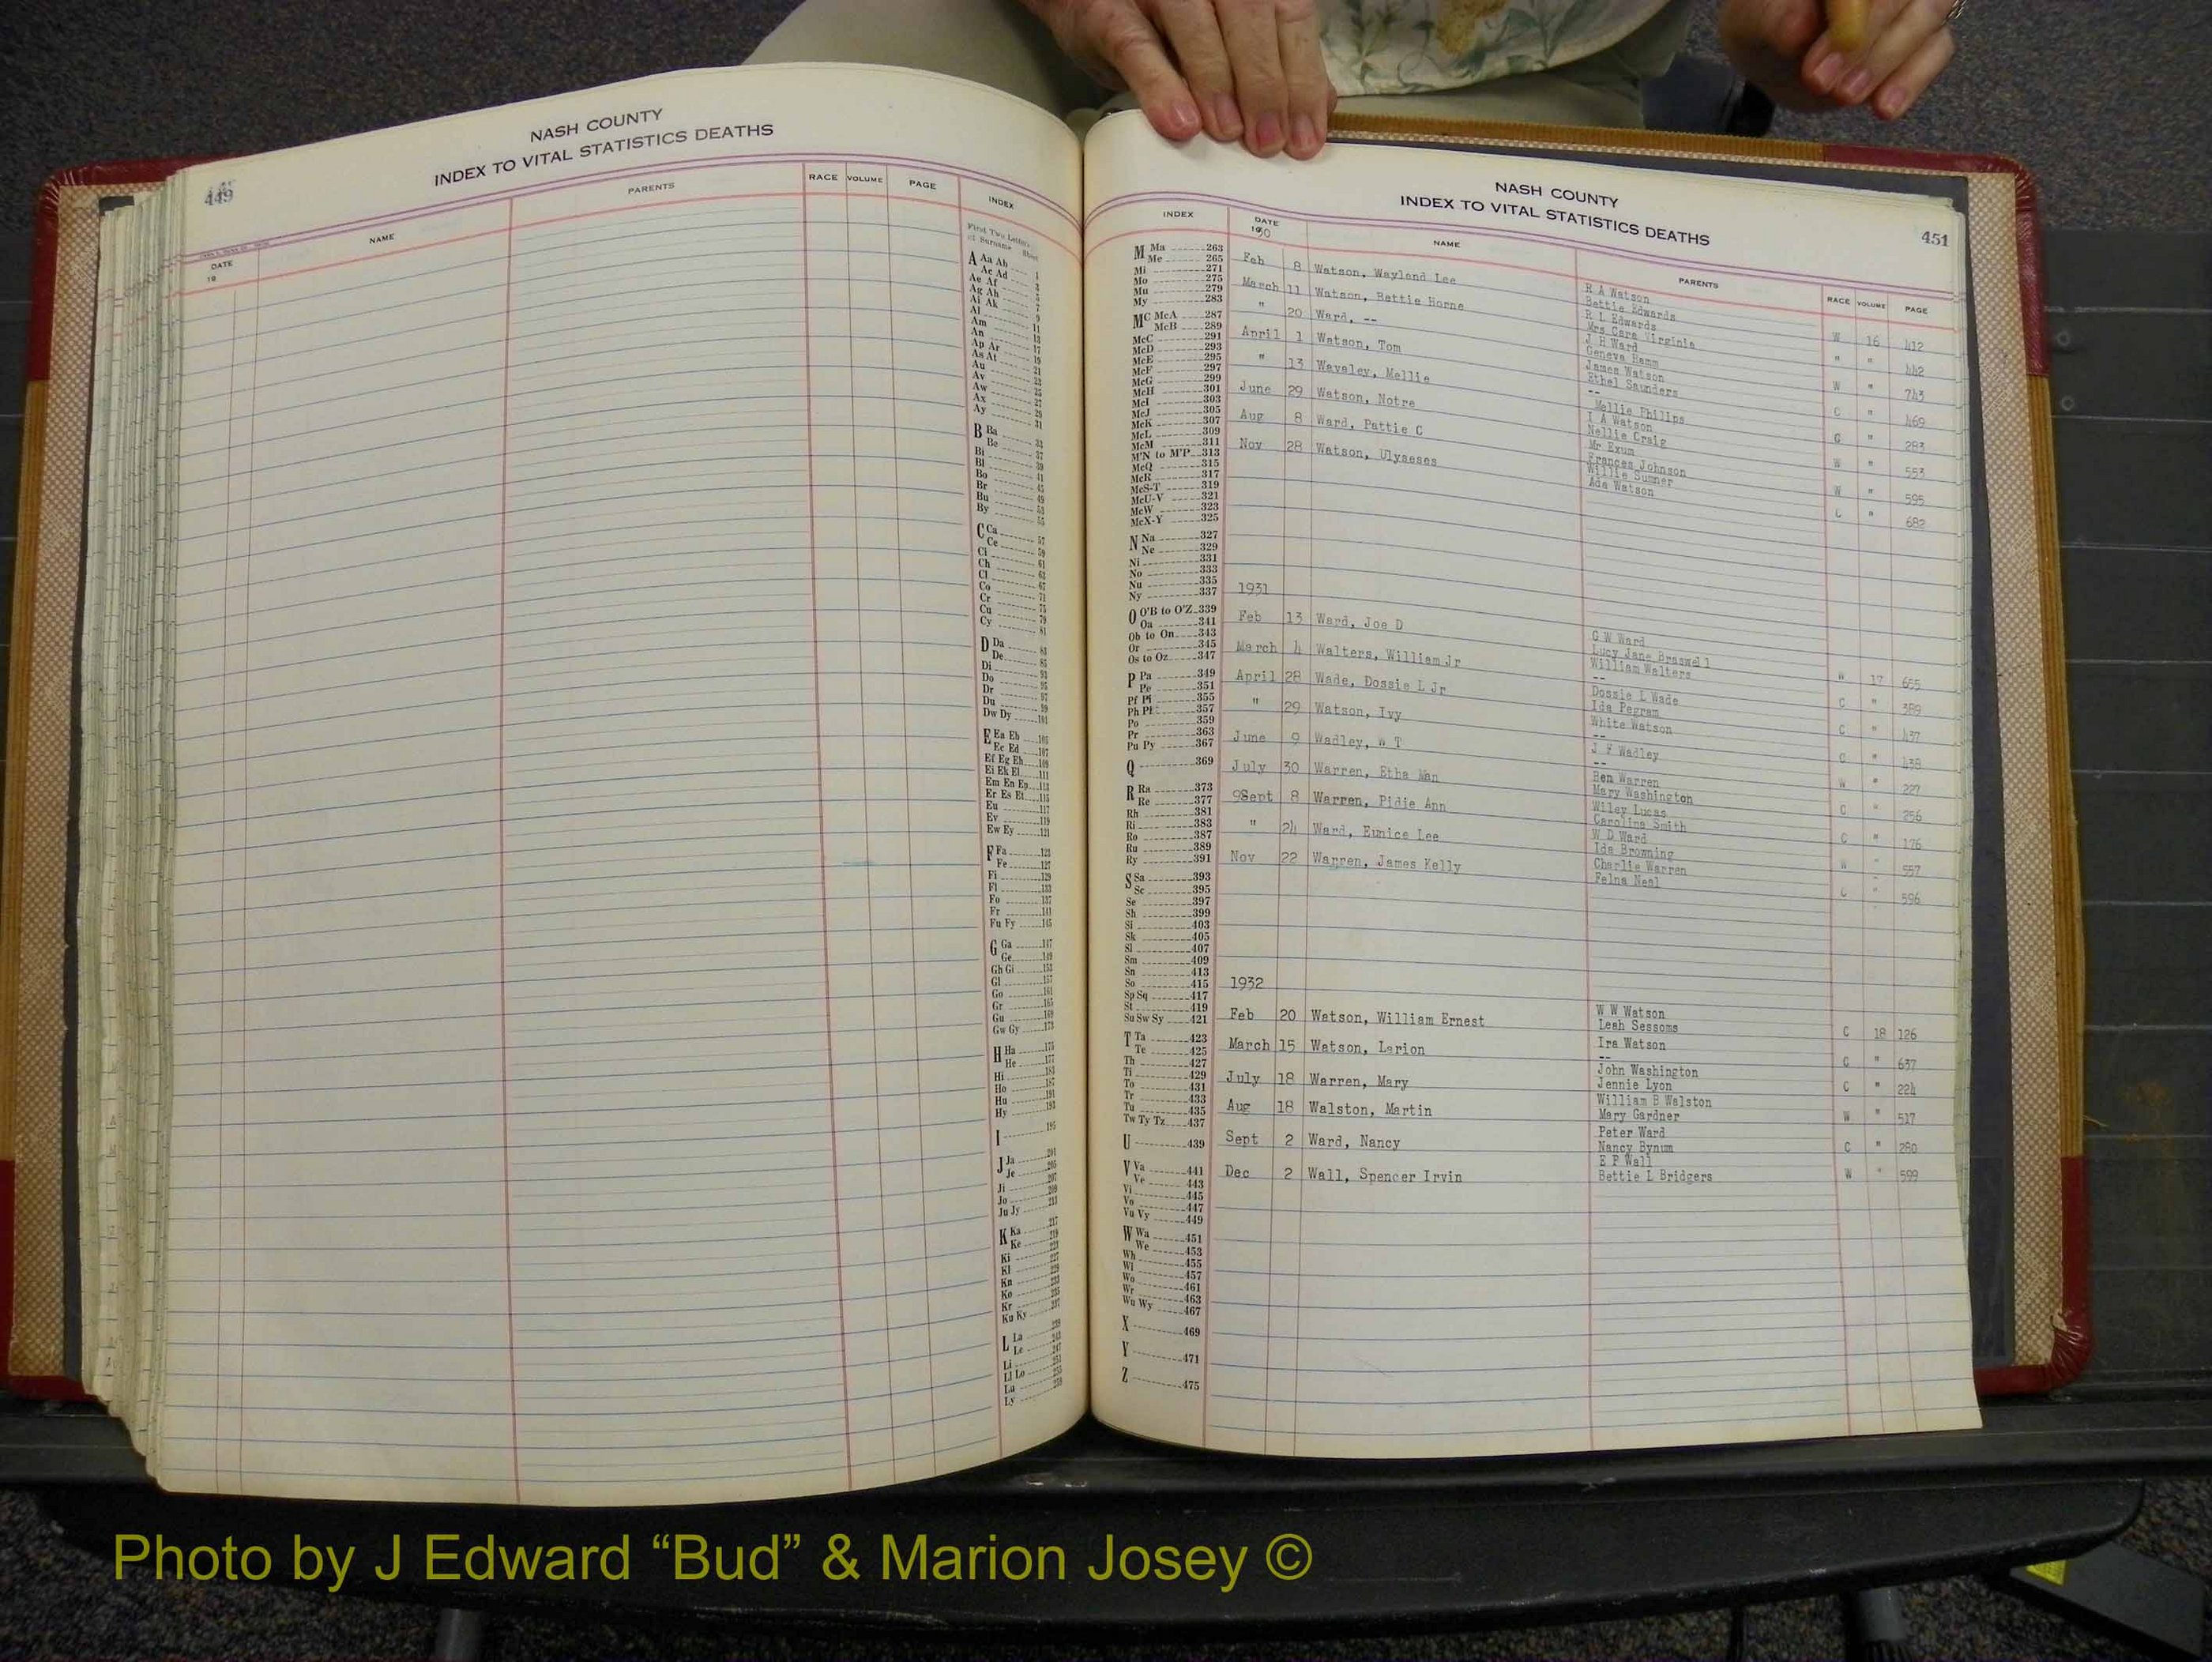 NASH COUNTY
INDEX TO VITAL STATISTICS DEATHS
449
DATE
19
NAME
PARENTS
RACE VOLUME PAGE INDEX
First Two Letters
of Surname Sheet
A Aa Ab
Ac Ad
Ae Af
Ag Ah
Ai Ak
Al
Am
An
Ap Ar
As At
Au
Av
Aw
Ax
Ay
B Ba
Be
Bi
Bl
Bo
Br
Bu
By
C Ca
Ce
Ci
Ch
Cl
Co
Cr
Cu
Cy
D Da
De
Di
Do
Dr
Du
Dw Dy
E Ea Eb
Ec Ed
Ef Eg Eh
Ei Ek El
Em En Ep
Er Es Et
Eu
Ev
Ew Ey
F Fa
Fe
Fi
Fl
Fo
Fr
Fu Fy
G Ga
Ge
Gh Gi
Gl
Go
Gr
Gu
Gw Gy
H Ha
He
Hi
Ho
Hu
Hy
I
J Ja
Je
Ji
Jo
Ju Jy
K Ka
Ke
Ki
Kl
Kn
Ko
Kr
Ku Ky
L La
Le
Li
Ll Lo
Lu
Ly
NASH COUNTY
INDEX TO VITAL STATISTICS DEATHS
451
INDEX
DATE
1930
NAME
PARENTS
RACE VOLUME PAGE
M Ma 263
Me 265
Mi 271
Mo 275
Mu 279
My 283
MC McA 287
McB 289
McC 291
McD 293
McE 295
McF 297
McG 299
McH 301
McI 303
McJ 305
McK 307
McL 309
McM 311
M'N to M'P 313
McQ 315
McR 317
McS-T 319
McU-V 321
McW 323
McX-Y 325
N Na 327
Ne 329
Ni 331
No 333
Nu 335
Ny 337
O O'B to O'Z 339
Oa 341
Ob to On 343
Or 345
Os to Oz 347
P Pa 349
Pe 351
Pf Pi 355
Ph Pl 357
Po 359
Pr 363
Pu Py 367
Q 369
R Ra 373
Re 377
Rh 381
Ri 383
Ro 387
Ru 389
Ry 391
S Sa 393
Sc 395
Se 397
Sh 399
Si 403
Sk 405
Sl 407
Sm 409
Sn 413
So 415
Sp Sq 417
St 419
Su Sw Sy 421
T Ta 423
Te 425
Th 427
Ti 429
To 431
Tr 433
Tu 435
Tw Ty Tz 437
U 439
V Va 441
Ve 443
Vi 445
Vo 447
Vu Vy 449
W Wa 451
We 453
Wh 455
Wi 457
Wo 461
Wr 463
Wu Wy 467
X 469
Y 471
Z 475
Feb 8 Watson, Wayland Lee R A Watson
Bettie Edwards W 16 412
March 11 Watson, Bettie Horne R L Edwards
Mrs Cara Virginia " " 442
" 20 Ward, -- J H Ward
Geneva Hamm W " 743
April 1 Watson, Tom James Watson
Ethel Saunders C " 469
" 13 Waveley, Mellie --
Mellie Philips C " 283
June 29 Watson, Notre I A Watson
Nellie Craig W " 553
Aug 8 Ward, Pattie C Mr Exum
Frances Johnson W " 595
Nov 28 Watson, Ulyseses Willie Sumner
Ada Watson C " 682
1931
Feb 13 Ward, Joe D G W Ward
Lucy Jane Braswell W 17 655
March 4 Walters, William Jr William Walters
-- C " 389
April 28 Wade, Dossie L Jr Dossie L Wade
Ida Pegram C " 437
" 29 Watson, Ivy White Watson
-- C " 438
June 9 Wadley, W T J F Wadley
-- W " 227
July 30 Warren, Etha Nan Ben Warren
Mary Washington C " 256
9Sept 8 Warren, Pidie Ann Wiley Lucas
Caroline Smith C " 176
" 24 Ward, Eunice Lee W D Ward
Ida Browning W " 557
Nov 22 Warren, James Kelly Charlie Warren
Felna Neal C " 596
1932
Feb 20 Watson, William Ernest W W Watson
Leah Sessoms C 18 126
March 15 Watson, Larion Ira Watson
-- C " 637
July 18 Warren, Mary John Washington
Jennie Lyon C " 224
Aug 18 Walston, Martin William B Walston
Mary Gardner W " 517
Sept 2 Ward, Nancy Peter Ward
Nancy Bynum C " 280
Dec 2 Wall, Spencer Irvin E P Wall
Bettie L Bridgers W " 599
Photo by J Edward “Bud” & Marion Josey ©